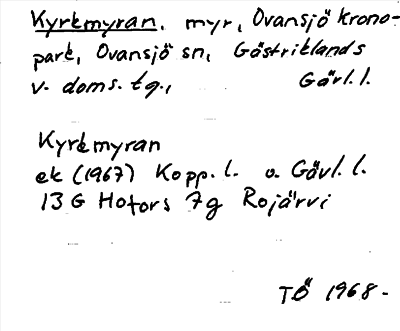 Kyrkmyran, myr, Ovansjö krono-
park, Ovansjö sn, Gästriklands
v. doms. tg., Gävl. l.
Kyrkmyran
ek (1967) Kopp. l. o. Gävl. l.
13 G Hofors 7g Rojärvi
TÖ 1968-